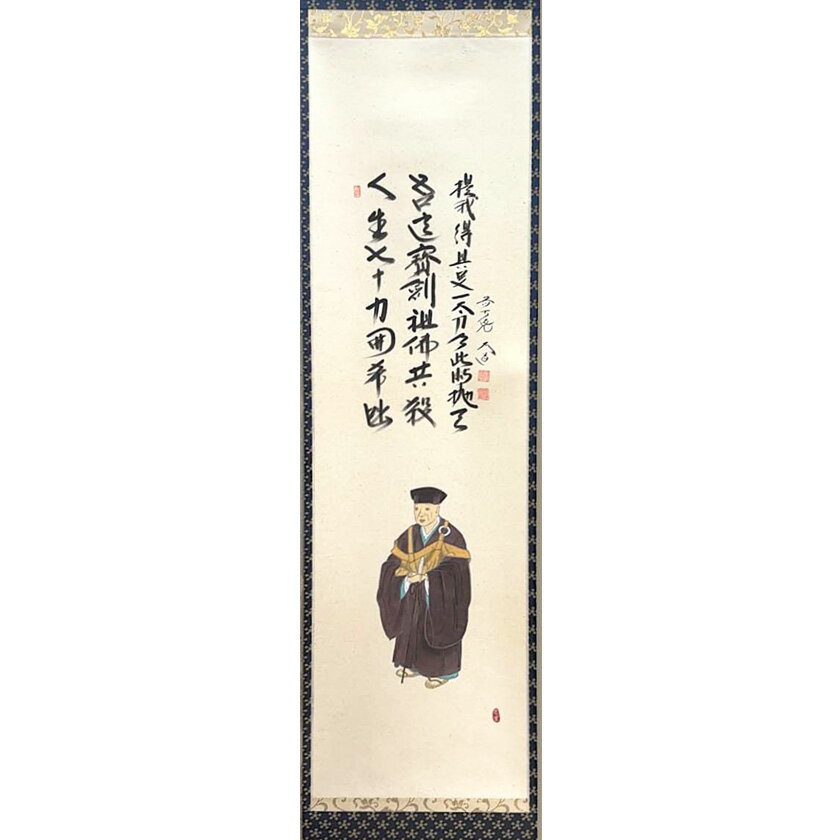 人生七十力囲希咄
吾這寶剣祖佛共殺
提我得具足一太刀 此時抛